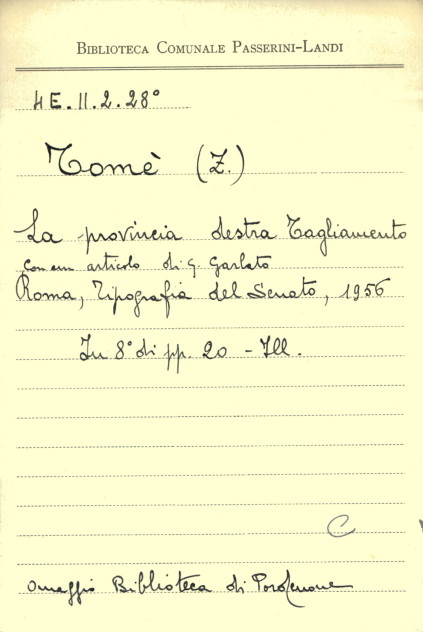 BIBLIOTECA COMUNALE PASSERINI-LANDI
4E.II.2.28°
Tomè (Z.)
La provincia destra Tagliamento
con un articolo di G. Garlato
Roma, Tipografia del Senato, 1956
In 8° di pp. 20 - Ill.
C
Omaggio Biblioteca di Pordenone